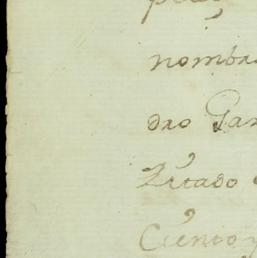 nombra
dro Gar
Zitado
Ciento y